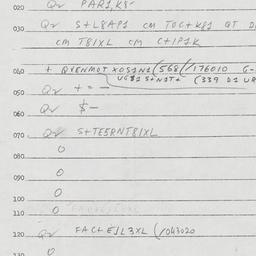 020 Qv PAR1,K8-
030 Qv S+L8AP1 CM TOC+K81 GT D
CM T81XL CM C+1P1K
040 + QVENMOT XOS1N1 (568//176010 G-
(339 D1 U8
050 Qv + = -
060 Qv $-
070 Qv S+TE5RNT81XL
080 0
090 0
100 0
110 0
120 Qv FAC+E1L3XL (/043020
130 0